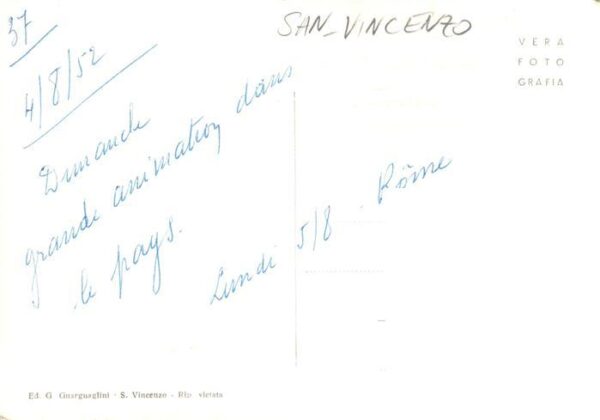 37
SAN-VINCENZO
VERA
FOTO
GRAFIA
4/8/52
Dimanche
grande animation dans
le pays.
Lundi 5/8 - Rome
Ed. G. Guarguaglini - S. Vincenzo - Rip. vietata